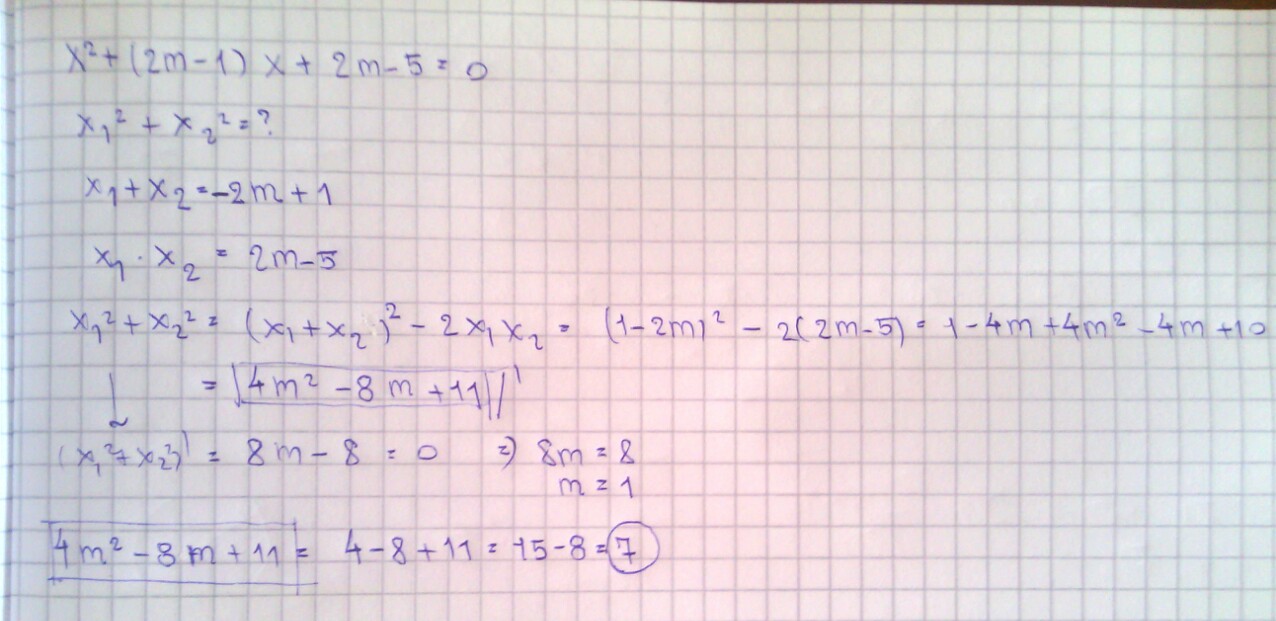 x² + (2m-1) x + 2m-5 = 0
x₁² + x₂² = ?
x₁ + x₂ = -2m + 1
x₁ · x₂ = 2m-5
x₁² + x₂² = (x₁ + x₂)² - 2x₁x₂ = (1-2m)² - 2(2m-5) = 1-4m+4m²-4m+10
= |4m² - 8m + 11|/'
(x₁² + x₂²)' = 8m - 8 = 0 ⇒ 8m = 8
m = 1
4m² - 8m + 11 = 4-8+11 = 15-8 = 7